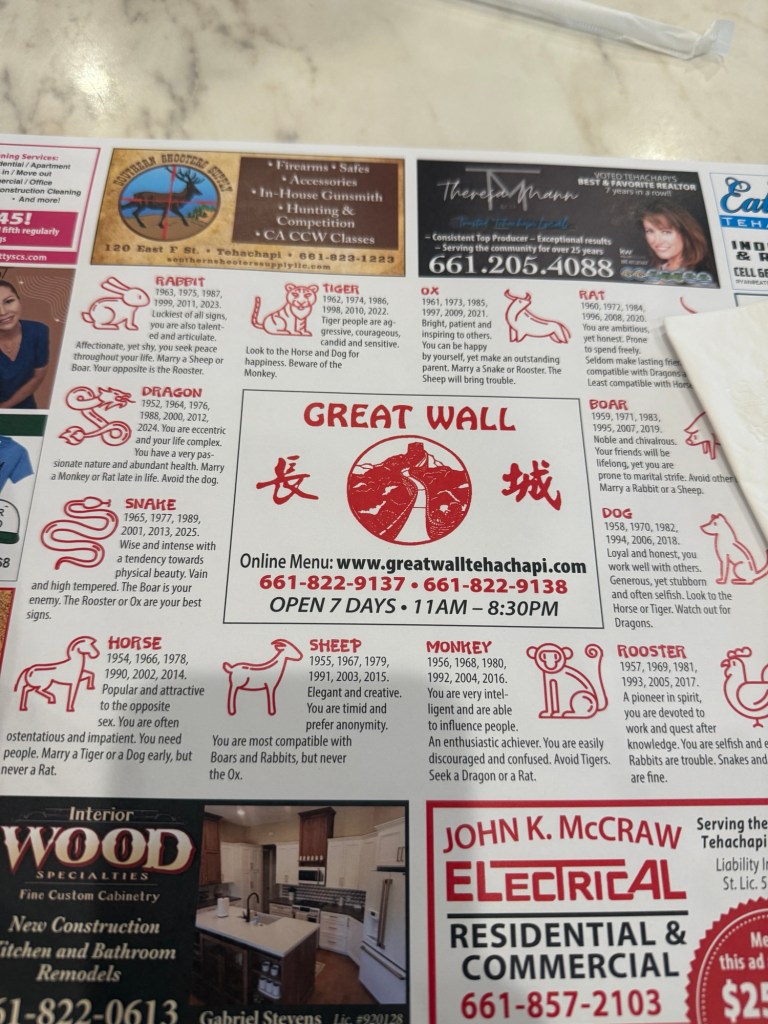 ning Services:
dential / Apartment
in / Move out
ercial / Office
onstruction Cleaning
• And more!
45!
fifth regularly
gs
ttyscs.com
SOUTHERN SHOOTERS SUPPLY
• Firearms • Safes
• Accessories
• In-House Gunsmith
• Hunting &
Competition
• CA CCW Classes
120 East F St. • Tehachapi • 661-823-1223
southernshooterssupplyllc.com
Theresa Mann
VOTED TEHACHAPI'S
BEST & FAVORITE REALTOR
7 years in a row!!
Trusted Tehachapi Locals
– Consistent Top Producer – Exceptional results
– Serving the community for over 25 years
661.205.4088
kw
Eat
TEHA
IND
& R
CELL 66
RABBIT
1963, 1975, 1987,
1999, 2011, 2023.
Luckiest of all signs,
you are also talent-
ed and articulate.
Affectionate, yet shy, you seek peace
throughout your life. Marry a Sheep or
Boar. Your opposite is the Rooster.
TIGER
1962, 1974, 1986,
1998, 2010, 2022.
Tiger people are ag-
gressive, courageous,
candid and sensitive.
Look to the Horse and Dog for
happiness. Beware of the
Monkey.
OX
1961, 1973, 1985,
1997, 2009, 2021.
Bright, patient and
inspiring to others.
You can be happy
by yourself, yet make an outstanding
parent. Marry a Snake or Rooster. The
Sheep will bring trouble.
RAT
1960, 1972, 1984,
1996, 2008, 2020.
You are ambitious,
yet honest. Prone
to spend freely.
Seldom make lasting frien
compatible with Dragons
Least compatible with Hors
DRAGON
1952, 1964, 1976,
1988, 2000, 2012,
2024. You are eccentric
and your life complex.
You have a very pas-
sionate nature and abundant health. Marry
a Monkey or Rat late in life. Avoid the dog.
GREAT WALL
長 城
Online Menu: www.greatwalltehachapi.com
661-822-9137 • 661-822-9138
OPEN 7 DAYS • 11AM – 8:30PM
BOAR
1959, 1971, 1983,
1995, 2007, 2019.
Noble and chivalrous.
Your friends will be
lifelong, yet you are
prone to marital strife. Avoid other
Marry a Rabbit or a Sheep.
SNAKE
1965, 1977, 1989,
2001, 2013, 2025.
Wise and intense with
a tendency towards
physical beauty. Vain
and high tempered. The Boar is your
enemy. The Rooster or Ox are your best
signs.
DOG
1958, 1970, 1982,
1994, 2006, 2018.
Loyal and honest, you
work well with others.
Generous, yet stubborn
and often selfish. Look to the
Horse or Tiger. Watch out for
Dragons.
68
HORSE
1954, 1966, 1978,
1990, 2002, 2014.
Popular and attractive
to the opposite
sex. You are often
ostentatious and impatient. You need
people. Marry a Tiger or a Dog early, but
never a Rat.
SHEEP
1955, 1967, 1979,
1991, 2003, 2015.
Elegant and creative.
You are timid and
prefer anonymity.
You are most compatible with
Boars and Rabbits, but never
the Ox.
MONKEY
1956, 1968, 1980,
1992, 2004, 2016.
You are very intel-
ligent and are able
to influence people.
An enthusiastic achiever. You are easily
discouraged and confused. Avoid Tigers.
Seek a Dragon or a Rat.
ROOSTER
1957, 1969, 1981,
1993, 2005, 2017.
A pioneer in spirit,
you are devoted to
work and quest after
knowledge. You are selfish and e
Rabbits are trouble. Snakes and
are fine.
Interior
WOOD
SPECIALTIES
Fine Custom Cabinetry
New Construction
Kitchen and Bathroom
Remodels
61-822-0613
Gabriel Stevens Lic. #920128
JOHN K. McCRAW
ELECTRICAL
RESIDENTIAL &
COMMERCIAL
661-857-2103
Serving the
Tehachapi
Liability In
St. Lic. 5
Me
this ad
$25